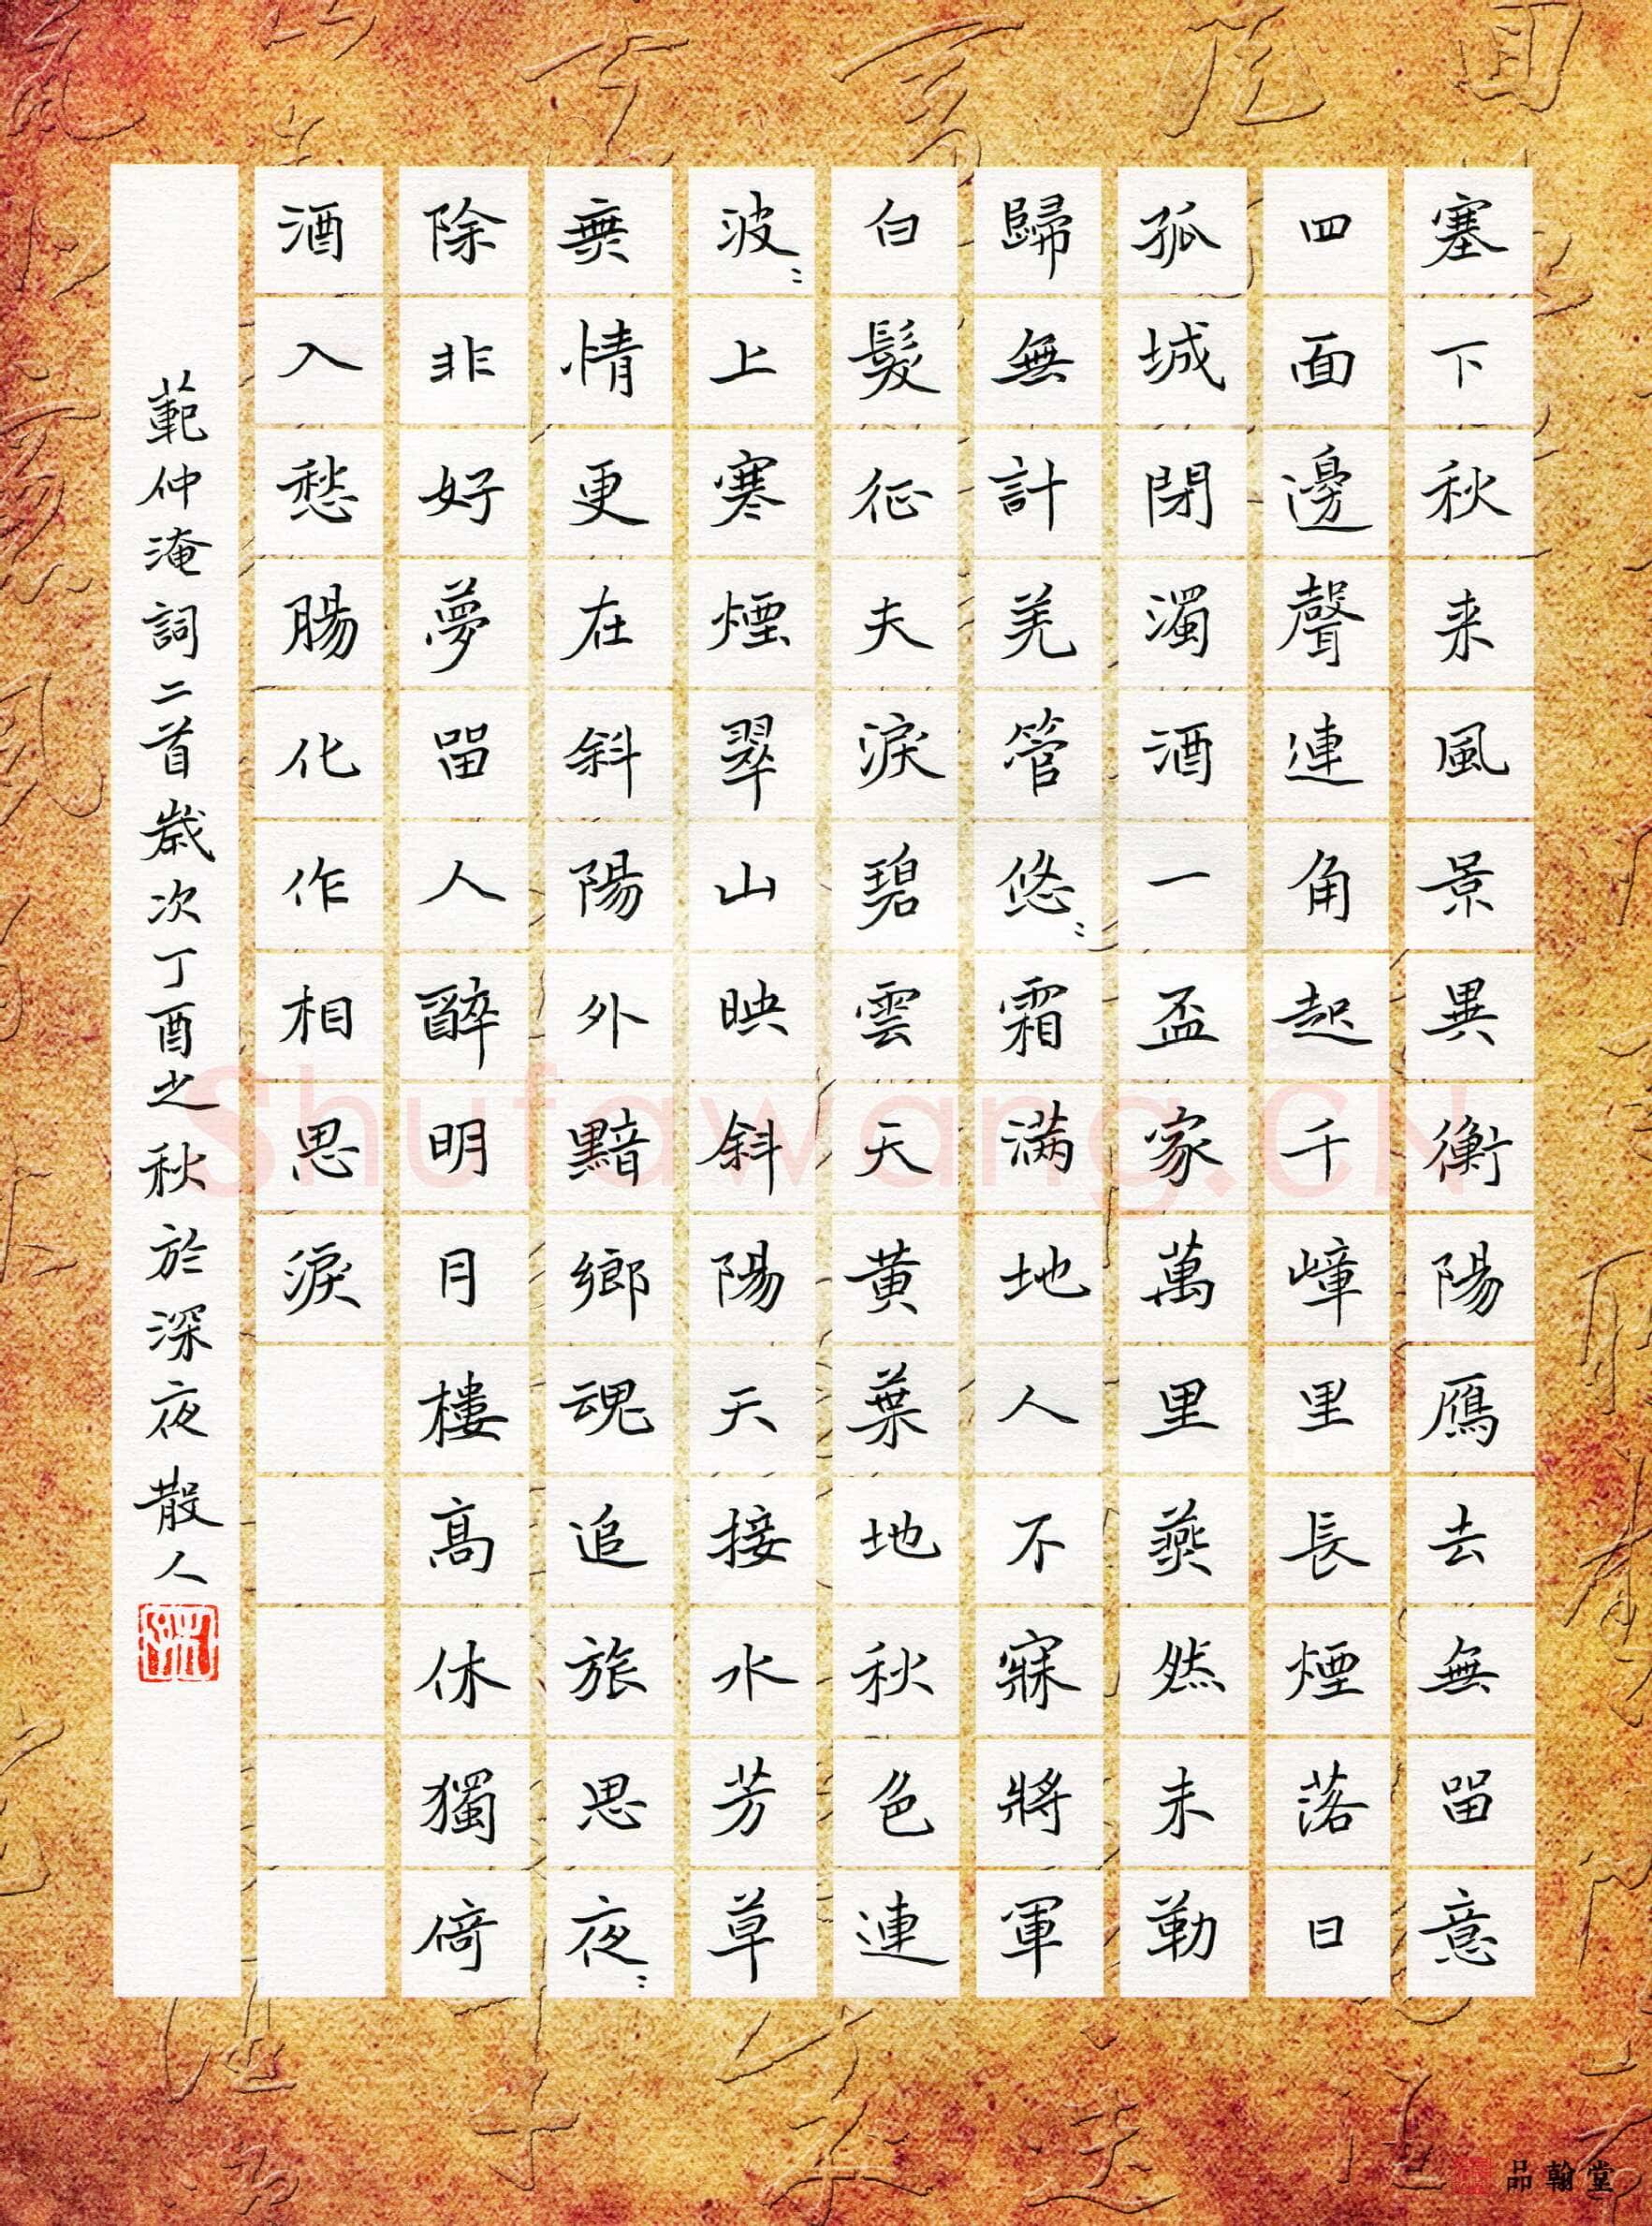 塞下秋来風景異衡陽鴈去無留意
四面邊聲連角起千嶂里長煙落日
孤城閉濁酒一盃家萬里燕然未勒
歸無計羌管悠〻霜滿地人不寐將軍
白髮征夫淚碧雲天黄葉地秋色連
波〻上寒煙翠山映斜陽天接水芳草
無情更在斜陽外黯鄉魂追旅思夜〻
除非好夢留人醉明月樓高休獨倚
酒入愁腸化作相思淚
範仲淹詞二首歲次丁酉之秋於深夜散人
沐
Shufawang.CN
品翰堂